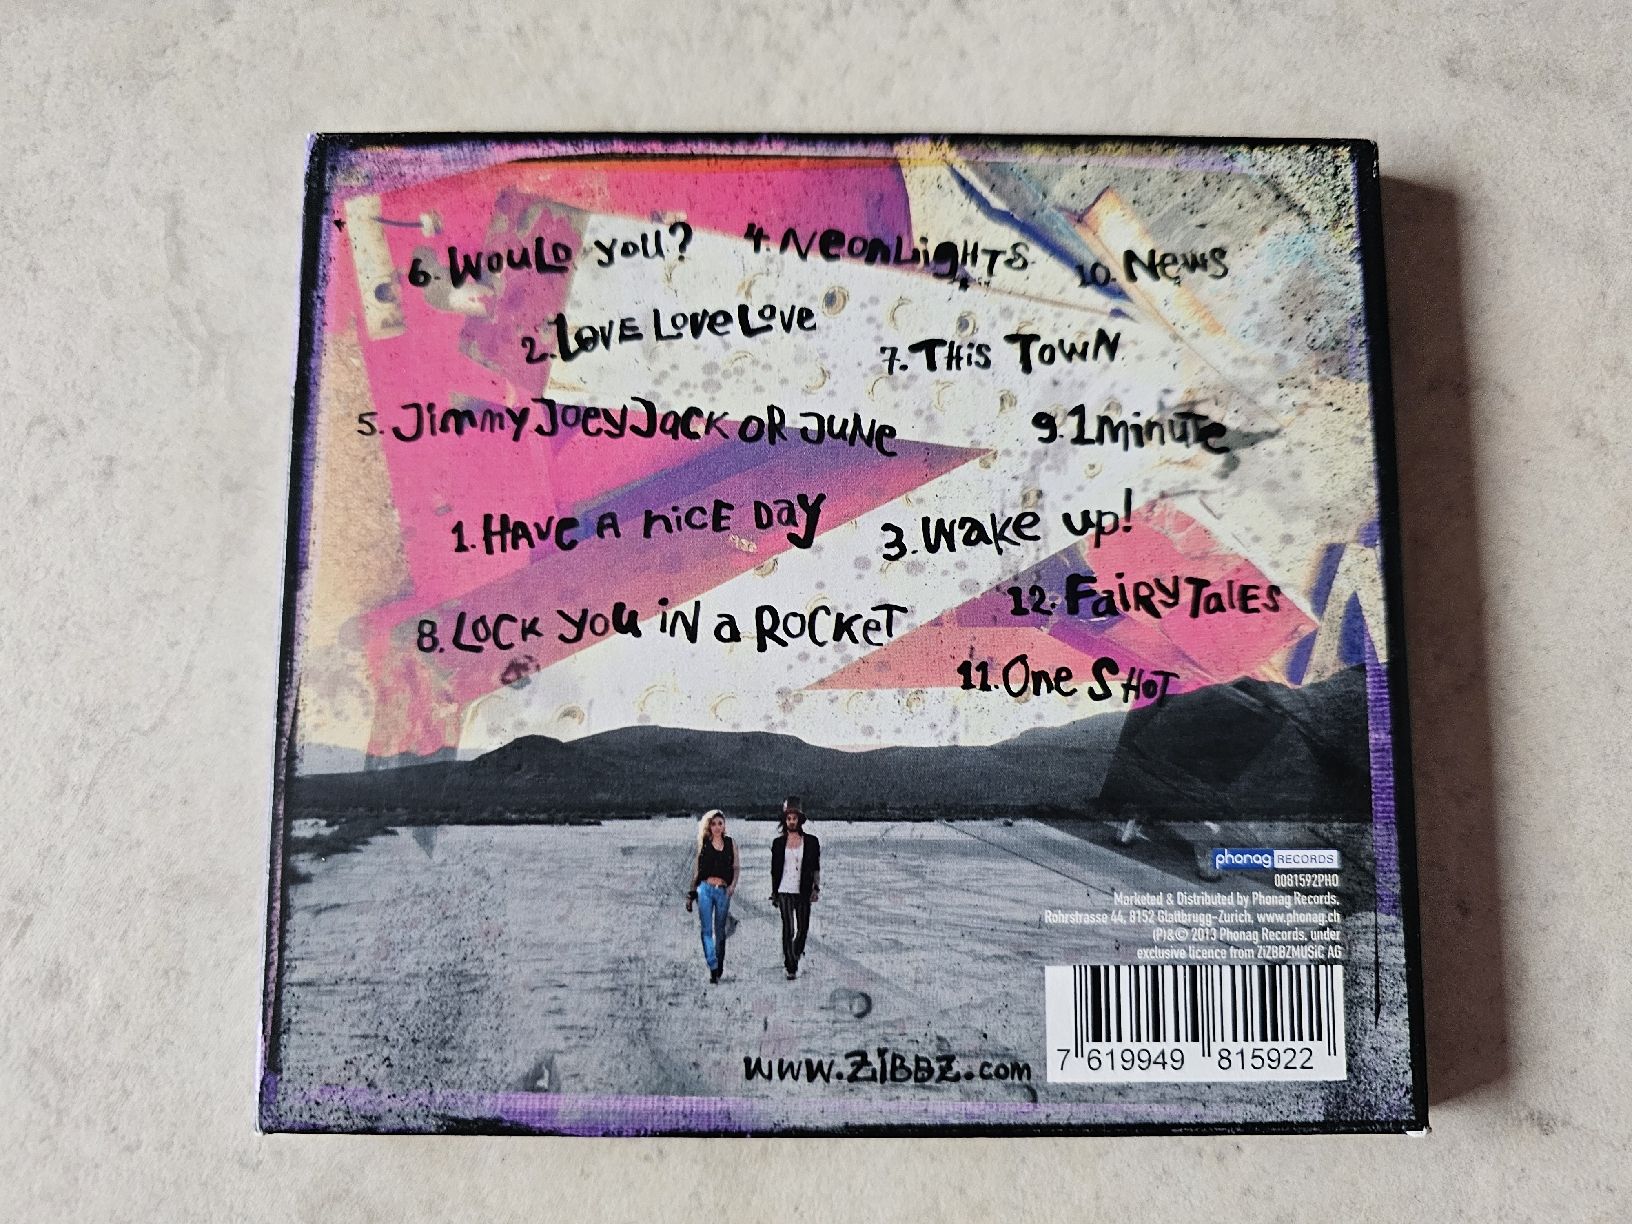 6. Would you?
4. NeonLigHTS
10. News
2. LOVE LoveLove
7. THis TOWN
5. JimmyJoeyJackOR JUNe
9. 1minuTe
1. HAVE A niCE Day
3. Wake up!
12. FaiRYTalES
8. LOCK YOU iN a ROCKeT
11. One SHOT
phonag RECORDS
0081592PHO
Marketed & Distributed by Phonag Records,
Rohrstrasse 44, 8152 Glattbrugg-Zurich, www.phonag.ch
(P)&© 2013 Phonag Records, under
exclusive licence from ZiZBBZMUSiC AG
www.ZiBBZ.com
7 619949 815922